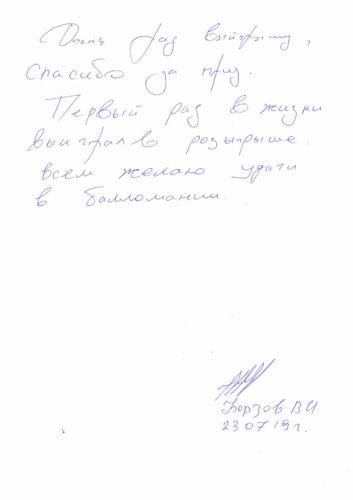 Очень рад выйгрышу,
спасибо за приз.
Первый раз в жизни
выиграл в розыгрыше.
всем желаю удачи
в балломании.
Борзов ВИ
23 07 19г.